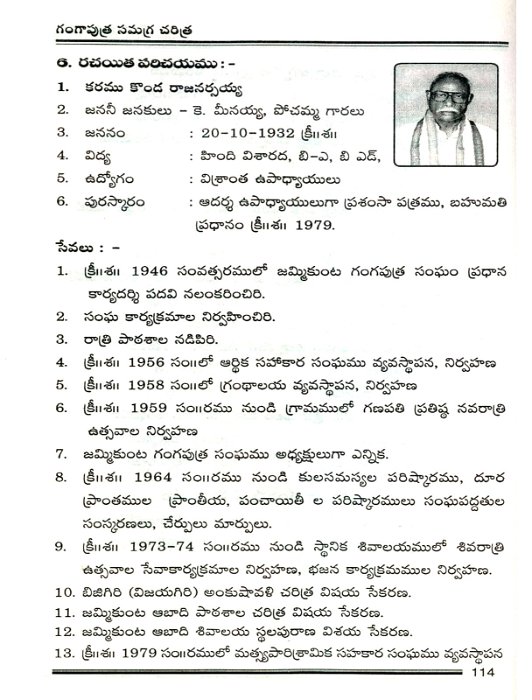 గంగాపుత్ర సమగ్ర చరిత్ర
6. రచయిత పరిచయము :-
1. కరము కొండ రాజనర్సయ్య
2. జననీ జనకులు – కె. మీనయ్య, పోచమ్మ గారలు
3. జననం : 20-10-1932 క్రీ॥శ॥
4. విద్య : హింది విశారద, బి-ఎ, బి ఎడ్,
5. ఉద్యోగం : విశ్రాంత ఉపాధ్యాయులు
6. పురస్కారం : ఆదర్శ ఉపాధ్యాయులుగా ప్రశంసా పత్రము, బహుమతి
ప్రధానం క్రీ॥శ॥ 1979.
సేవలు : –
1. క్రీ॥శ॥ 1946 సంవత్సరములో జమ్మికుంట గంగపుత్ర సంఘం ప్రధాన
కార్యదర్శి పదవి నలంకరించిరి.
2. సంఘ కార్యక్రమాల నిర్వహించిరి.
3. రాత్రి పాఠశాల నడిపిరి.
4. క్రీ॥శ॥ 1956 సం॥లో ఆర్థిక సహాకార సంఘము వ్యవస్థాపన, నిర్వహణ
5. క్రీ॥శ॥ 1958 సం॥లో గ్రంథాలయ వ్యవస్థాపన, నిర్వహణ
6. క్రీ॥శ॥ 1959 సం॥రము నుండి గ్రామములో గణపతి ప్రతిష్ఠ నవరాత్రి
ఉత్సవాల నిర్వహణ
7. జమ్మికుంట గంగపుత్ర సంఘము అధ్యక్షులుగా ఎన్నిక.
8. క్రీ॥శ॥ 1964 సం॥రము నుండి కులసమస్యల పరిష్కారము, దూర
ప్రాంతముల ప్రాంతీయ, పంచాయితీ ల పరిష్కారములు సంఘపద్ధతుల
సంస్కరణలు, చేర్పులు మార్పులు.
9. క్రీ॥శ॥ 1973-74 సం॥రము నుండి స్థానిక శివాలయములో శివరాత్రి
ఉత్సవాల సేవాకార్యక్రమాల నిర్వహణ, భజన కార్యక్రమముల నిర్వహణ.
10. బిజిగిరి (విజయగిరి) అంకుషావళి చరిత్ర విషయ సేకరణ.
11. జమ్మికుంట ఆబాది పాఠశాల చరిత్ర విషయ సేకరణ.
12. జమ్మికుంట ఆబాది శివాలయ స్థలపురాణ విశయ సేకరణ.
13. క్రీ॥శ॥ 1979 సం॥రములో మత్స్యపారిశ్రామిక సహకార సంఘము వ్యవస్థాపన
114